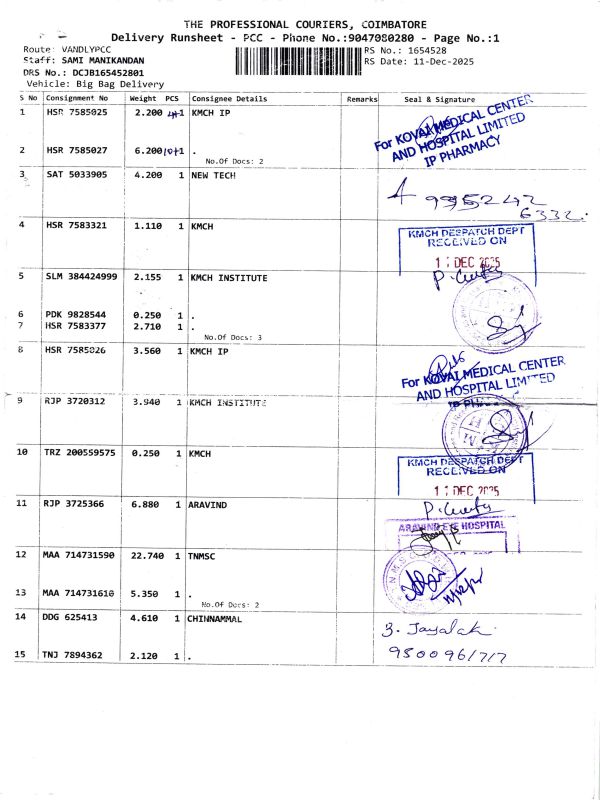 THE PROFESSIONAL COURIERS, COIMBATORE
Delivery Runsheet - PCC - Phone No.:9047080280 - Page No.:1
Route: VANDLYPCC
RS No.: 1654528
Staff: SAMI MANIKANDAN
RS Date: 11-Dec-2025
DRS No.: DCJB165452801
Vehicle: Big Bag Delivery
S No Consignment No Weight PCS Consignee Details Remarks Seal & Signature
1 HSR 7585025 2.200 1 KMCH IP
For KOVAI MEDICAL CENTER
AND HOSPITAL LIMITED
IP PHARMACY
2 HSR 7585027 6.200 10+1 .
No.Of Docs: 2
3 SAT 5033905 4.200 1 NEW TECH
9995242
6332.
4 HSR 7583321 1.110 1 KMCH
KMCH DESPATCH DEPT
RECEIVED ON
DEC 2025
5 SLM 384424999 2.155 1 KMCH INSTITUTE
6 PDK 9828544 0.250 1 .
7 HSR 7583377 2.710 1 .
No.Of Docs: 3
8 HSR 7585026 3.560 1 KMCH IP
For KOVAI MEDICAL CENTER
AND HOSPITAL LIMITED
9 RJP 3720312 3.940 1 KMCH INSTITUTE
10 TRZ 200559575 0.250 1 KMCH
KMCH DESPATCH DEPT
RECEIVED ON
DEC 2025
11 RJP 3725366 6.880 1 ARAVIND
ARAVIND EYE HOSPITAL
12 MAA 714731590 22.740 1 TNMSC
13 MAA 714731610 5.350 1 .
No.Of Docs: 2
14 DDG 625413 4.610 1 CHINNAMMAL
15 TNJ 7894362 2.120 1 .